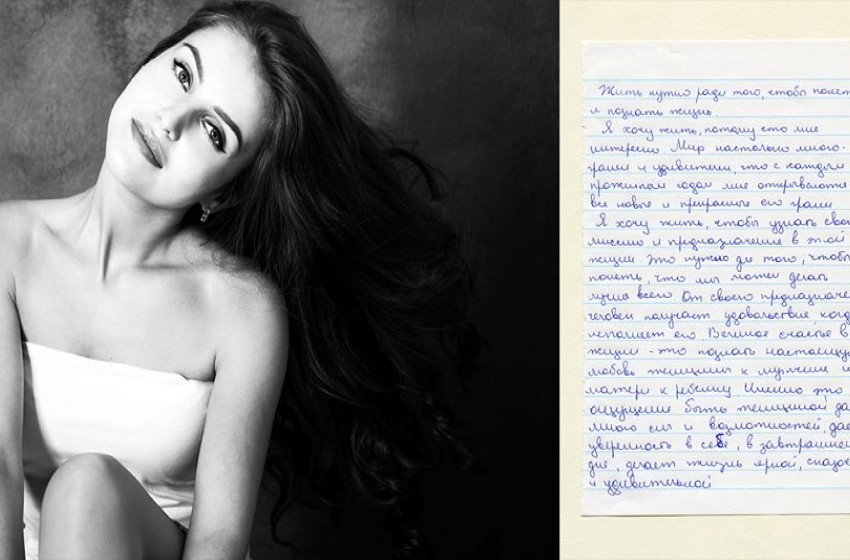 Жить нужно ради того, чтобы понят
и познать жизнь.
Я хочу жить, потому что мне
интересно. Мир настолько много-
гранен и удивителен, что с каждым
прожитым годом мне открываются
все новые и прекрасные его грани
Я хочу жить, чтобы узнать сво
миссию и предназначение в этой
жизни. Это нужно для того, чтобы
понять, что мы можем делать
лучше всего. От своего предназначе
человек получает удовольствие, когд
исполняет его. Великое счастье в
жизни - это познать настоящую
любовь женщины к мужчине и
матери к ребенку. Именно это
ощущение быть женщиной да
много сил и возможностей, дае
уверенность в себе, в завтрашне
дне, делает жизнь яркой, сказоч
и удивительной